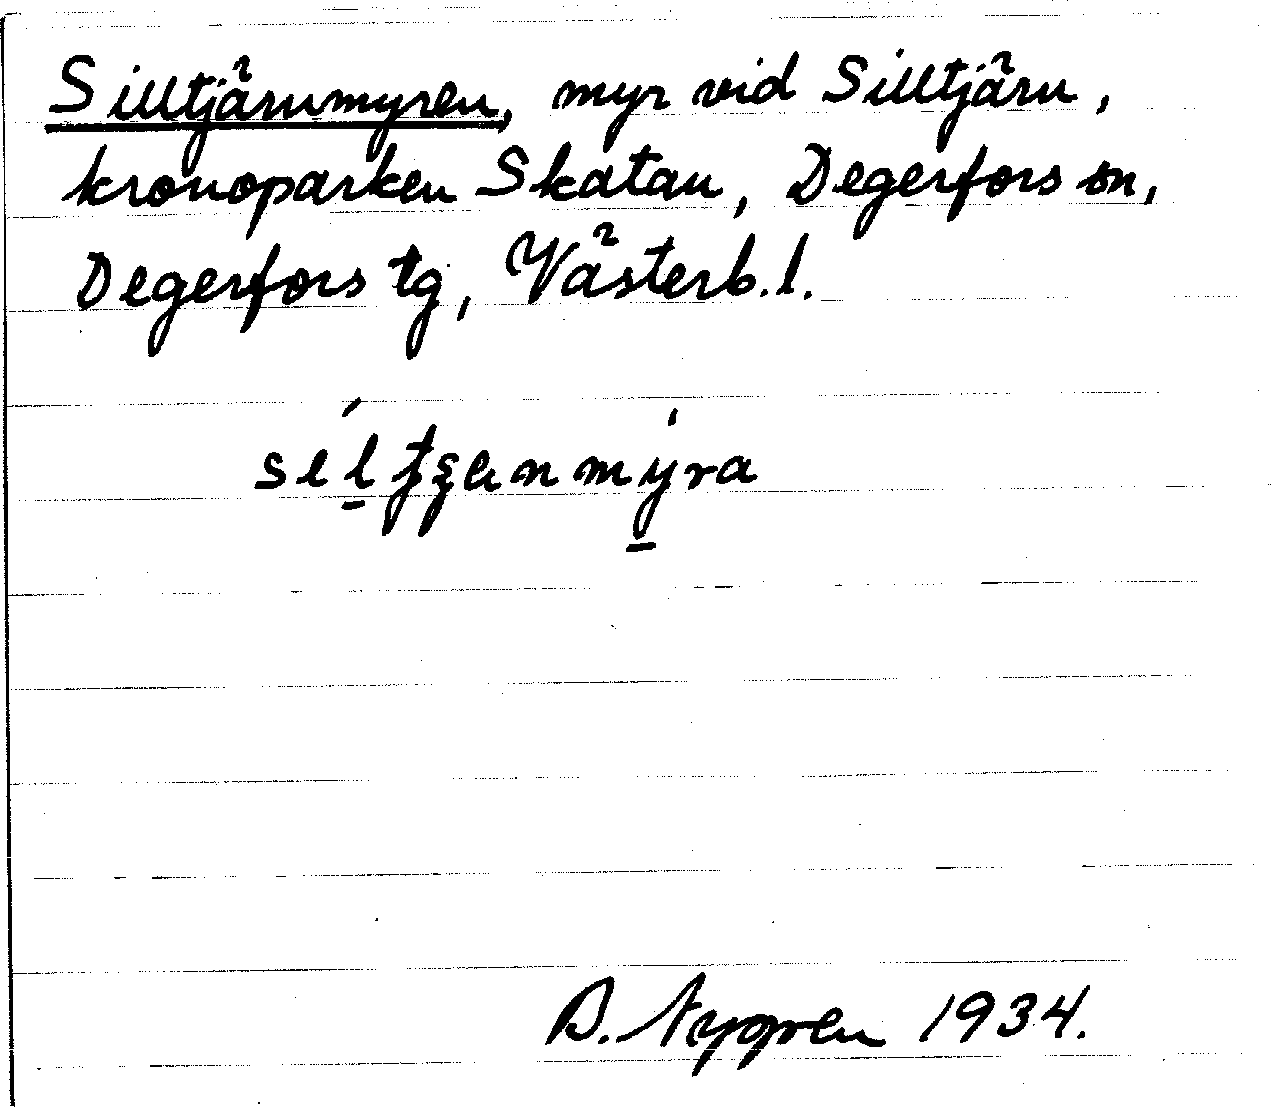 Silltjärnmyren, myr vid Silltjärn,
kronoparken Skatan, Degerfors sn,
Degerfors tg, Västerb.l.
1934.